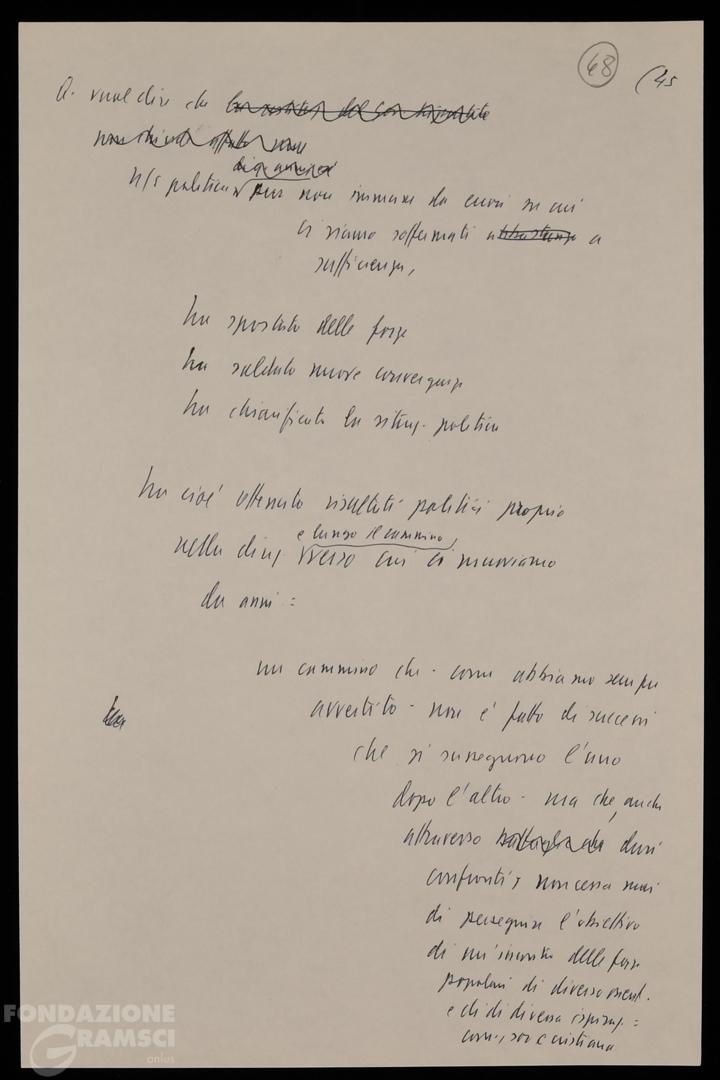 48
(45
Q. vuol dire che
n/s politica, pur non immune da errori su cui
ci siamo soffermati a
sufficienza,
ha spostato delle forze
ha saldato nuove convergenze
ha chiarificato la situaz. politica
ha cioè ottenuto risultati politici proprio
e lungo il cammino,
nella direz. verso cui ci muoviamo
da anni =
un cammino che - come abbiamo sempre
avvertito - non è fatto di successi
che si susseguono l'uno
dopo l'altro - ma che, anche
attraverso duri
confronti, non cessa mai
di perseguire l'obiettivo
di un'incontro delle forze
popolari di diverso orient.
e di di diversa ispiraz. =
com., soc e cristiana
FONDAZIONE
GRAMSCI
onlus